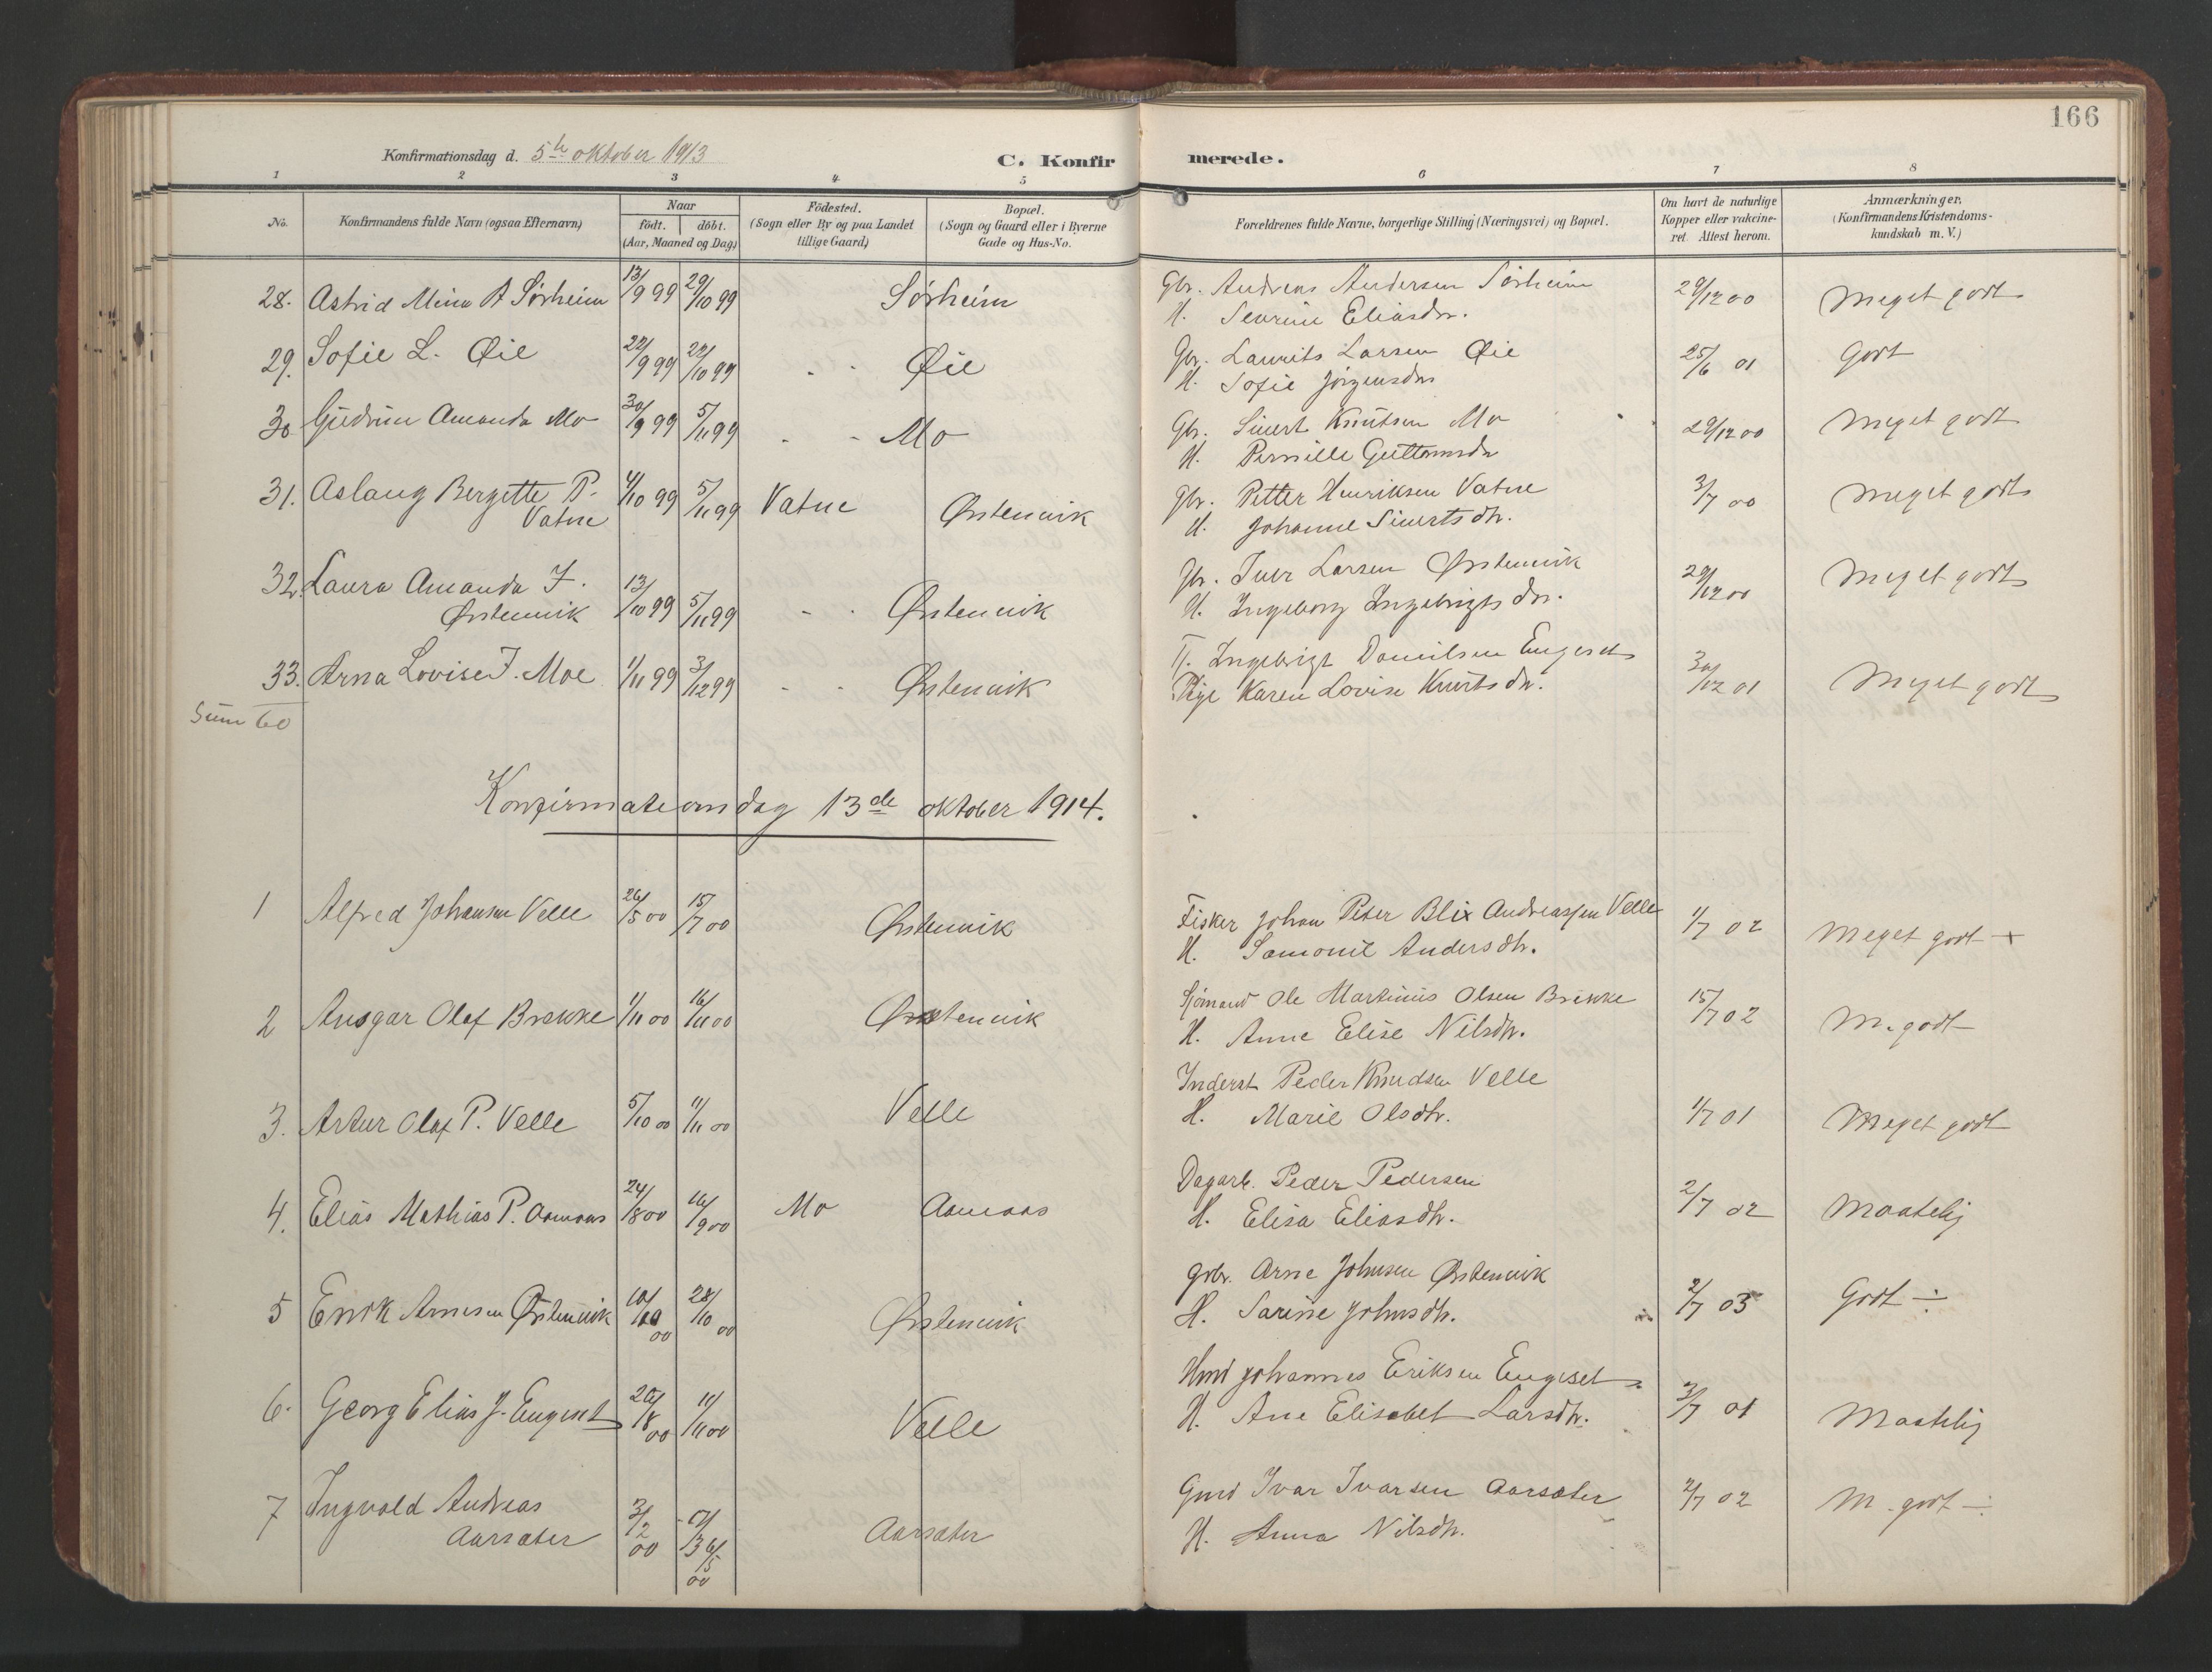 166
Konfirmationsdag d. 5te oktober 1913
C. Konfirmerede.
1 2 3 4 5 6 7 8
No. Konfirmandens fulde Navn (ogsaa Efternavn) Naar født. døbt. (Aar, Maaned og Dag) Födested. (Sogn eller By og paa Landet tillige Gaard) Bopæl. (Sogn og Gaard eller i Byerne Gade og Hus-No. Forældrenes fulde Navne, borgerlige Stilling (Næringsvei) og Bopæl. Om havt de naturlige Kopper eller vakcineret. Attest herom. Anmærkninger. (Konfirmandens Kristendomskundskab m. V.)
28. Astrid Mina A Sørheim 13/9 99 29/10 99 Sørheim Gbr. Andreas Andersen Sørheim 29/12 00 Meget godt
H. Sevrine Eliasdr.
29. Sofie L. Øie 22/9 99 22/10 99 " " Øie Gbr. Laurits Larsen Øie 25/6 01 Godt
H. Sofie Jørgensdr
30 Gudrun Amanda Mo 30/9 99 5/11 99 " " Mo Gbr. Sivert Knutsen Mo 29/12 00 Meget godt
H. Pernille Guttormsdr
31. Aslaug Bergitte P. 4/10 99 5/11 99 Vatne Ørstenvik Gbr. Petter Henriksen Vatne 3/7 00 Meget godt
Vatne H. Johanne Sivertsdtr.
32. Laura Amanda I. 13/10 99 5/11 99 " " Ørstenvik Gbr. Iver Larsen Ørstenvik 29/12 00 Meget godt
Ørstenvik H. Ingeborg Ingebrigtsdr.
33. Arna Lovise I. Moe 1/11 99 3/12 99 " " Ørstenvik Tj. Ingebrigt Danielsen Engeset 30/12 01 Meget godt
Pige Karen Lovise Knutsdr.
Sum 60
Konfirmationsdag 13de oktober 1914.
1 Alfred Johansen Velle 26/5 00 15/7 00 Ørstenvik Fisker Johan Peter Blix Andreassen Velle 1/7 02 Meget godt +
H. Samoine Andersdtr.
2 Ansgar Olaf Brekke 1/11 00 16/11 00 Ørstenvik Sjømand Ole Martinus Olsen Brekke 15/7 02 M. godt
H. Anne Elise Nilsdtr.
3. Artur Olaf P. Velle 5/10 00 11/11 00 Velle Inderst Peder Knudsen Velle 1/7 01 Meget godt
H. Marie Olsdtr.
4. Elias Mathias P. Aamaas 24/8 00 16/9 00 Mo Aamaas Dagarb. Peder Pedersen 2/7 02 Maatelig
H. Elisa Eliasdtr.
5 Enok Arnesen Ørstenvik 10/10 00 28/10 00 Ørstenvik Grbr. Arne Johnsen Ørstenvik 2/7 03 Godt ÷
H. Sarine Johnsdtr.
6. Georg Elias J. Engeset 20/8 00 11/11 00 Velle Hmd Johannes Eriksen Engeset 3/7 01 Maatelig
H. Ane Elisabet Larsdtr.
7 Ingvald Andreas 3/2 00 6/5 00 Aarsæter Gmd Ivar Ivarsen Aarsæter 2/7 02 M. godt ÷
Aarsæter H. Anna Nilsdtr.